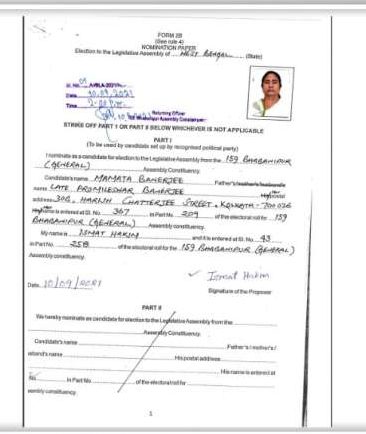 FORM 2B
(See rule 4)
NOMINATION PAPER
Election to the Legislative Assembly of WEST BENGAL (State)
Date 10/09/2021
Time
Returning Officer
STRIKE OFF PART I OR PART II BELOW WHICHEVER IS NOT APPLICABLE
PART I
(To be used by candidate set up by recognised political party)
I nominate as a candidate for election to the Legislative Assembly from the 159 BHABANIPUR
(GENERAL) Assembly Constituency.
Candidate's name MAMATA BANERJEE Father's/mother's/husband's
name LATE PROMILESWAR BANERJEE His postal
address 30B, HARISH CHATTERJEE STREET, KOLKATA-700026
His name is entered at Sl. No. 367 in Part No 209 of the electoral roll for 159
BHABANIPUR (GENERAL) Assembly constituency.
My name is ISMAT HAKIM and it is entered at Sl. No. 43
in Part No. 258 of the electoral roll for the 159 BHABANIPUR (GENERAL)
Assembly constituency.
Ismat Hakim
Date 10/09/2021
Signature of the Proposer
PART II
We hereby nominate as candidate for election to the Legislative Assembly from the
Assembly Constituency.
Candidate's name Father's / mother's /
husband's name His postal address
His name is entered at
No. in Part No. of the electoral roll for
assembly constituency.
1